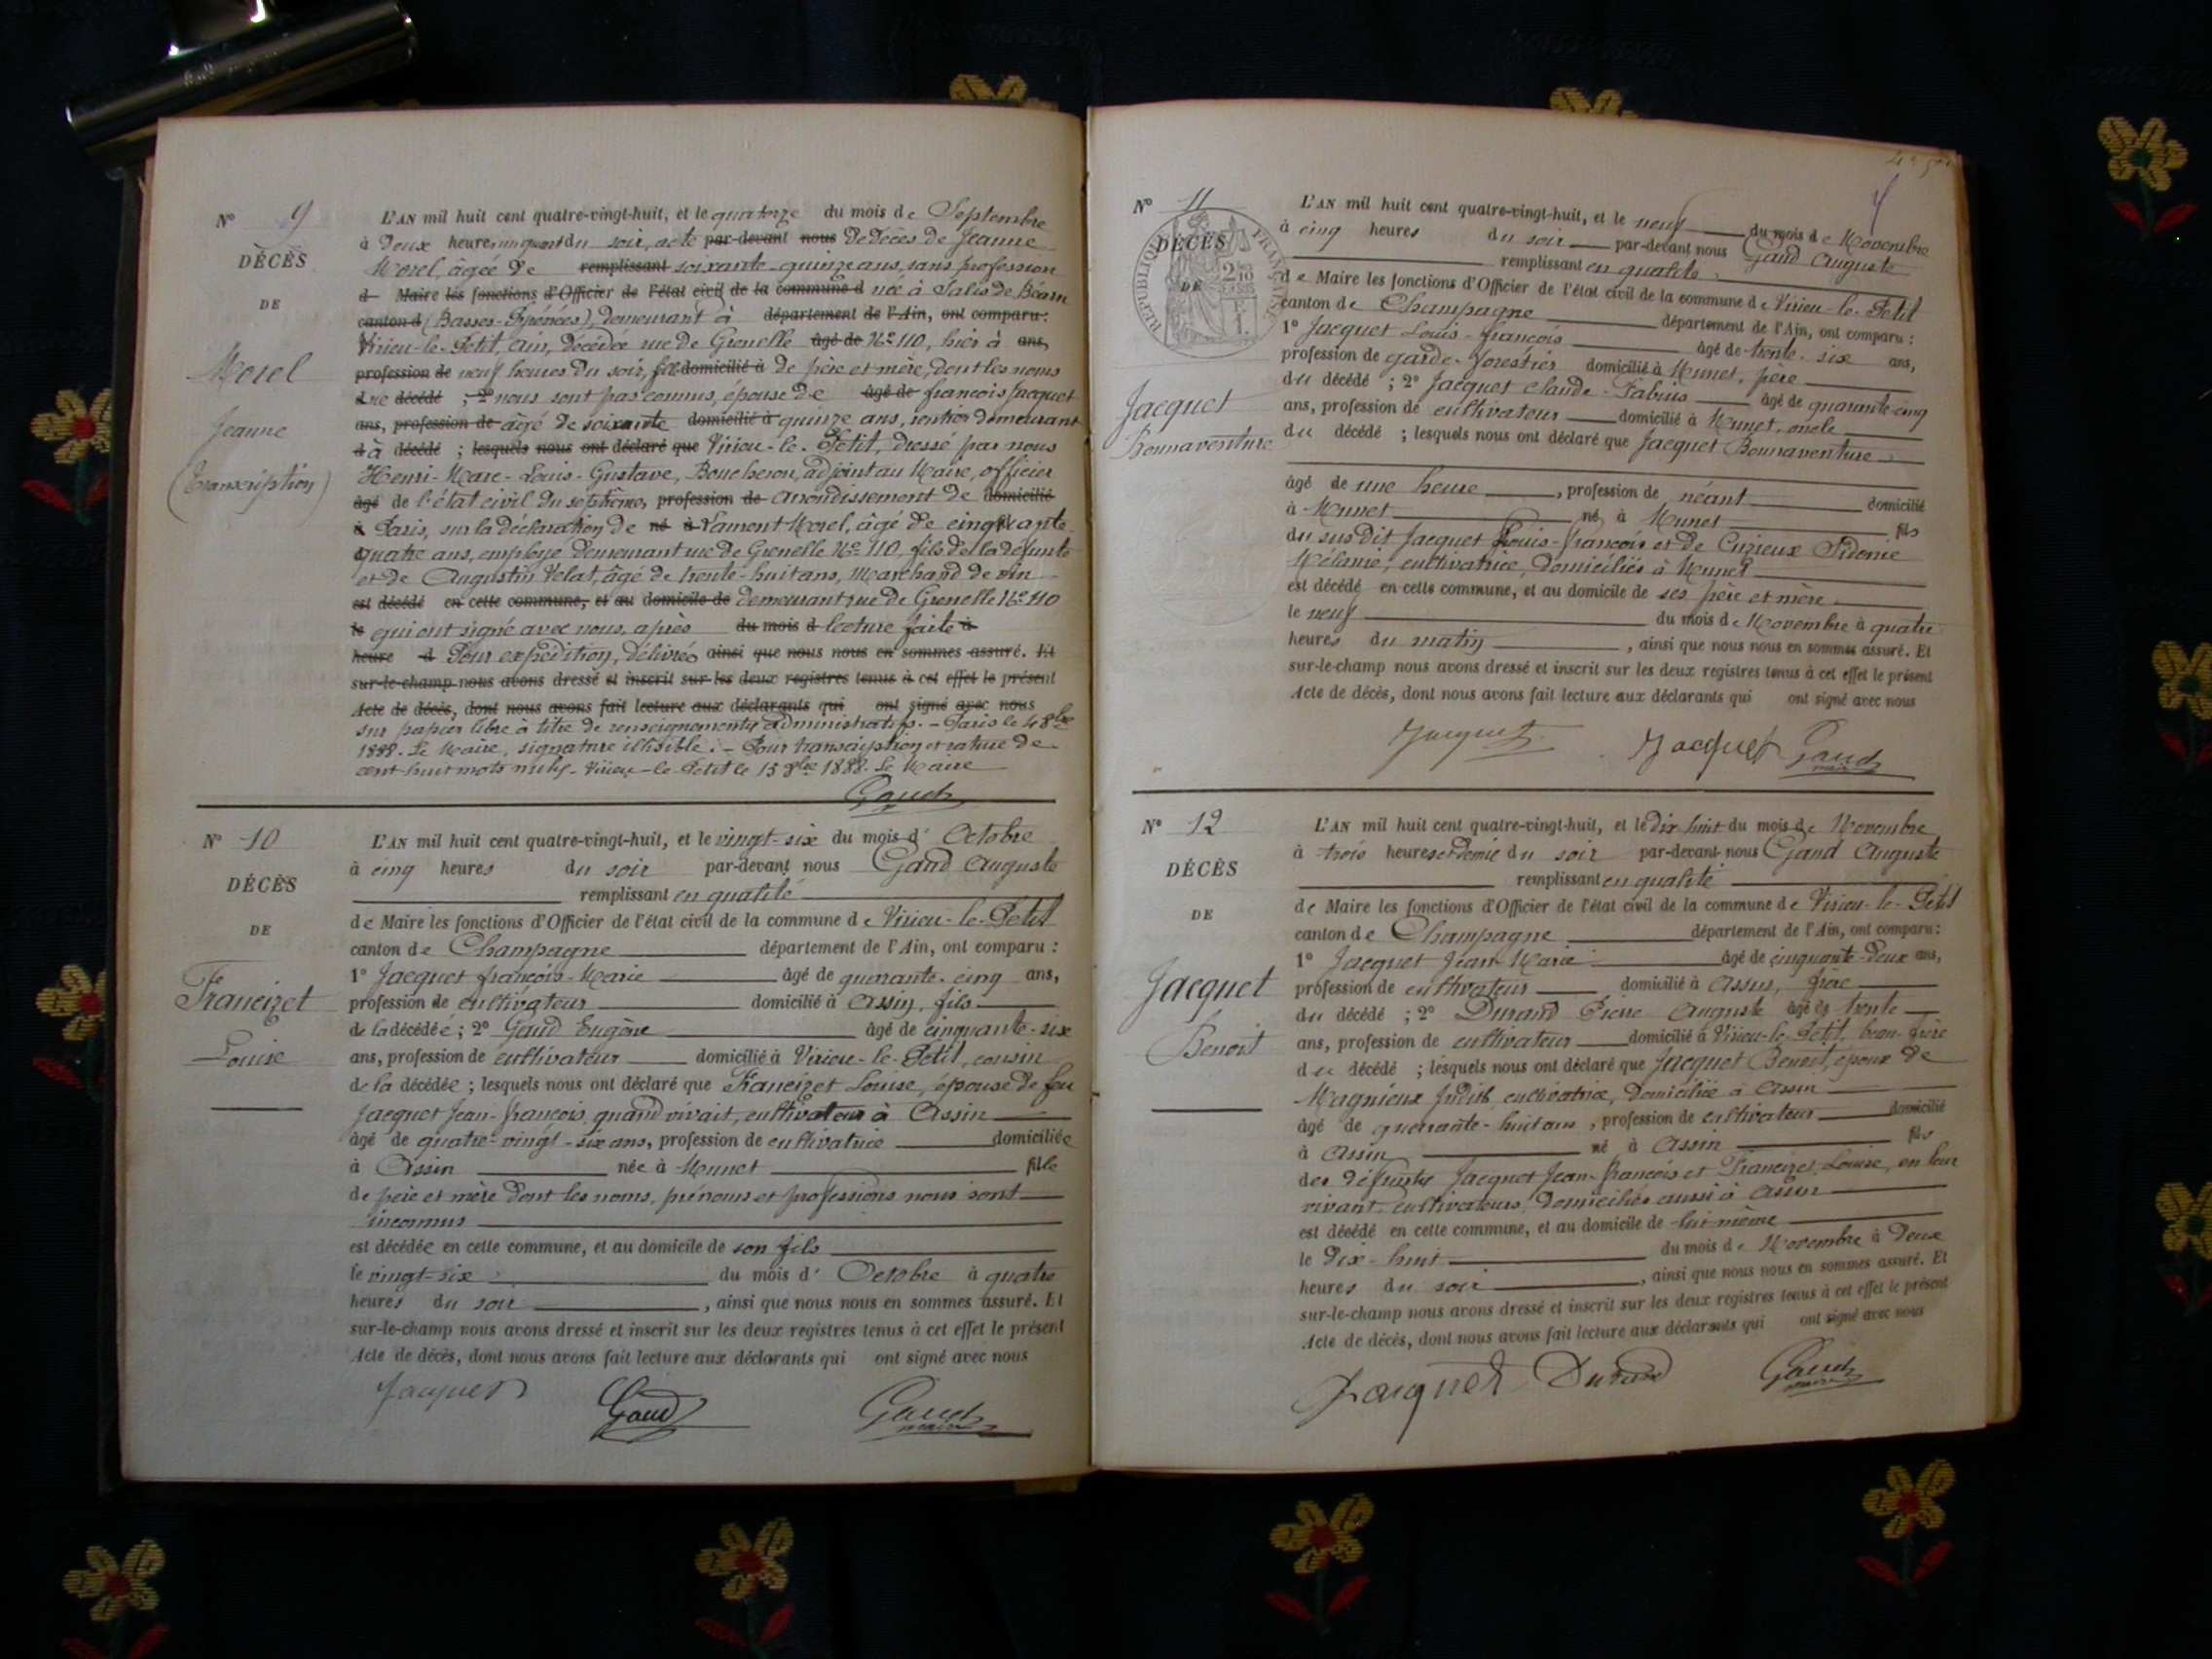 N° 9
DÉCÈS
DE
Morel
Jeanne
(Transcription)
L'AN mil huit cent quatre-vingt-huit, et le quatorze du mois de Septembre
à deux heures un quart du soir, acte par-devant nous de décès de Jeanne
Morel, âgée de remplissant soixante-quinze ans, sans profession
d Maire les fonctions d'Officier de l'état civil de la commune d née à Salis de Béarn
canton d (Basses-Pyrénées), demeurant à département de l'Ain, ont comparu :
Virieu-le-Petit, Ain, décédée rue de Grenelle âgé de N° 110, hier à ans,
profession de neuf heures du soir, fille domicilié à de père et mère, dont les noms
d décédé ; 2° nous sont pas connus, épouse de âgé de françois Jacquet
ans, profession de âgé de soixante domicilié à quinze ans, rentier demeurant
d à décédé ; lesquels nous ont déclaré que Virieu-le-Petit, dressé par nous
Henri-Marc-Louis-Gustave, Boucheron, adjoint au Maire, officier
âgé de l'état civil du septième, profession de arrondissement de domicilié
à Paris, sur la déclaration de né à Laurent Morel, âgé de cinquante
quatre ans, employé demeurant rue de Grenelle N° 110, fils de la défunte
et de Augustin Velat, âgé de trente-huit ans, Marchand de vin
est décédé en cette commune, et au domicile de demeurant rue de Grenelle N° 110
le qui ont signé avec nous, après du mois d lecture faite à
heure d Pour expédition, délivrée ainsi que nous nous en sommes assuré. Et
sur-le-champ nous avons dressé et inscrit sur les deux registres tenus à cet effet le présent
Acte de décès, dont nous avons fait lecture aux déclarants qui ont signé avec nous
sur papier libre à titre de renseignements administratifs. - Paris le 4 8bre
1888. Le Maire, signature illisible. - Pour transcription et rature de
cent-huit mots nuls. Virieu-le-Petit le 15 8bre 1888. Le Maire
Gaud
N° 10
DÉCÈS
DE
Francizet
Louise
L'AN mil huit cent quatre-vingt-huit, et le vingt-six du mois d' Octobre
à cinq heures du soir par-devant nous Gaud Auguste
remplissant en qualité
de Maire les fonctions d'Officier de l'état civil de la commune de Virieu-le-Petit
canton de Champagne département de l'Ain, ont comparu :
1° Jacquet françois-Marie âgé de quarante-cinq ans,
profession de cultivateur domicilié à Assin, fils
de la décédée ; 2° Gaud Eugène âgé de cinquante-six
ans, profession de cultivateur domicilié à Virieu-le-Petit, cousin
de la décédée ; lesquels nous ont déclaré que Francizet Louise, épouse de feu
Jacquet Jean-françois, quand vivait, cultivateur à Assin
âgé de quatre-vingt-six ans, profession de cultivatrice domiciliée
à Assin née à Munet fille
de père et mère dont les noms, prénoms et professions nous sont
inconnus
est décédée en cette commune, et au domicile de son fils
le vingt-six du mois d' Octobre à quatre
heures du soir , ainsi que nous nous en sommes assuré. Et
sur-le-champ nous avons dressé et inscrit sur les deux registres tenus à cet effet le présent
Acte de décès, dont nous avons fait lecture aux déclarants qui ont signé avec nous
Jacquet Gaud Gaud
4
N° 11
DÉCÈS
DE
RÉPUBLIQUE FRANÇAISE
Jacquet
Bonnaventure
L'AN mil huit cent quatre-vingt-huit, et le neuf du mois de Novembre
à cinq heures du soir par-devant nous Gaud Auguste
remplissant en qualité
de Maire les fonctions d'Officier de l'état civil de la commune de Virieu-le-Petit
canton de Champagne département de l'Ain, ont comparu :
1° Jacquet Louis-françois âgé de trente-six ans,
profession de garde-forestier domicilié à Munet, père
du décédé ; 2° Jacquet Claude-Fabius âgé de quarante-cinq
ans, profession de cultivateur domicilié à Munet, oncle
du décédé ; lesquels nous ont déclaré que Jacquet Bonnaventure
âgé de une heure , profession de néant domicilié
à Munet né à Munet fils
du susdit Jacquet Louis-françois et de Cuzieux Sidonie
Mélanie, cultivatrice, domiciliés à Munet
est décédé en cette commune, et au domicile de ses père et mère
le neuf du mois de Novembre à quatre
heures du matin , ainsi que nous nous en sommes assuré. Et
sur-le-champ nous avons dressé et inscrit sur les deux registres tenus à cet effet le présent
Acte de décès, dont nous avons fait lecture aux déclarants qui ont signé avec nous
Jacquet Jacquet Gaud
N° 12
DÉCÈS
DE
Jacquet
Benoit
L'AN mil huit cent quatre-vingt-huit, et le dix-huit du mois de Novembre
à trois heures et demie du soir par-devant nous Gaud Auguste
remplissant en qualité
de Maire les fonctions d'Officier de l'état civil de la commune de Virieu-le-Petit
canton de Champagne département de l'Ain, ont comparu :
1° Jacquet Jean-Marie âgé de cinquante-deux ans,
profession de cultivateur domicilié à Assin, frère
du décédé ; 2° Durand Pierre Auguste âgé de trente
ans, profession de cultivateur domicilié à Virieu-le-Petit, beau-frère
du décédé ; lesquels nous ont déclaré que Jacquet Benoit, époux de
Magnieux Judith, cultivatrice, domiciliée à Assin
âgé de quarante-huit ans , profession de cultivateur domicilié
à Assin né à Assin fils
des défunts Jacquet Jean-françois et Francizet Louise, en leur
vivant cultivateurs, domiciliés aussi à Assin
est décédé en cette commune, et au domicile de lui-même
le dix-huit du mois de Novembre à deux
heures du soir , ainsi que nous nous en sommes assuré. Et
sur-le-champ nous avons dressé et inscrit sur les deux registres tenus à cet effet le présent
Acte de décès, dont nous avons fait lecture aux déclarants qui ont signé avec nous
Jacquet Durand Gaud